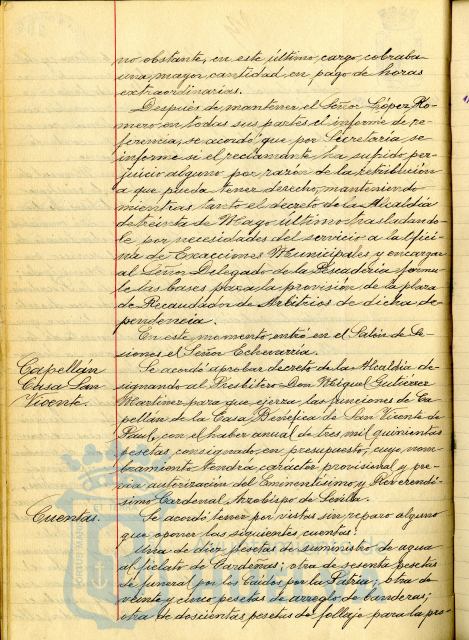 no obstante, en este último cargo, cobraba
una mayor cantidad en pago de horas
extraordinarias.
Después de mantener el Señor López Ro-
mero en todas sus partes el informe de re-
ferencia, se acordó que por Secretaría, se
informe si el reclamante ha sufrido per-
juicio alguno por razón de la retribución
a que pueda tener derecho, manteniendo
mientras tanto el decreto de la Alcaldía
de treinta de Mayo último trasladando-
le por necesidades del servicio a la Ofici-
na de Exacciones Municipales y encargar
al Señor Delegado de la Pescadería formu-
le las bases para la provisión de la plaza
de Recaudador de Arbitrios de dicha de-
pendencia.
En este momento, entró en el Salón de Se-
siones el Señor Echevarría.
Capellán
Casa San
Vicente.
Se acordó aprobar decreto de la Alcaldía de-
signando al Presbítero Don Miguel Gutiérrez
Martínez para que ejerza las funciones de Ca-
pellán de la Casa Benéfica de San Vicente de
Paul, con el haber anual de tres mil quinientas
pesetas consignado en presupuesto, cuyo nom-
bramiento tendrá carácter provisional y pre-
via autorización del Eminentísimo y Reverendí-
simo Cardenal Arzobispo de Sevilla.
Cuentas.
Se acordó tener por vistas sin reparo alguno
que oponer las siguientes cuentas:
Una de diez pesetas de suministro de agua
al piclato de Cardeñas; otra de sesenta pesetas
de funeral por los Caídos por la Patria; otra de
veinte y cinco pesetas de arreglo de banderas;
otra de doscientas pesetas de follaje para la pro-